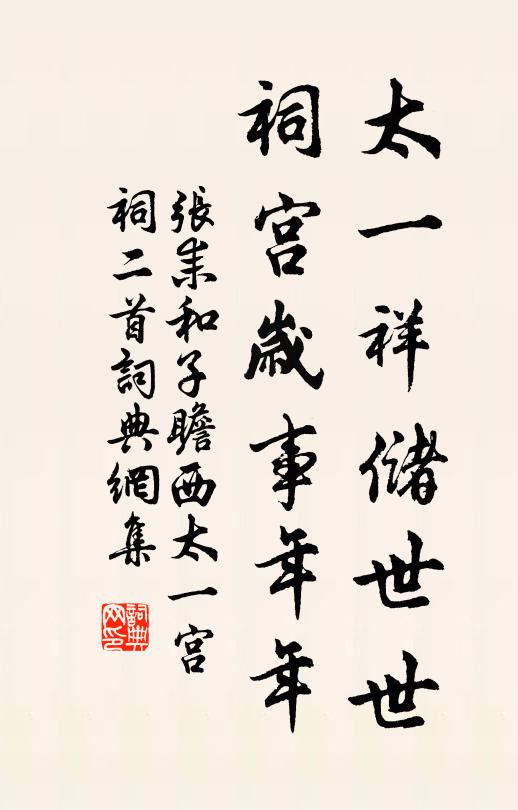 太一祥儲世世
祠宫歲事年年
張耒和子瞻西太一宫
祠二首詞典網集
詞典
网印